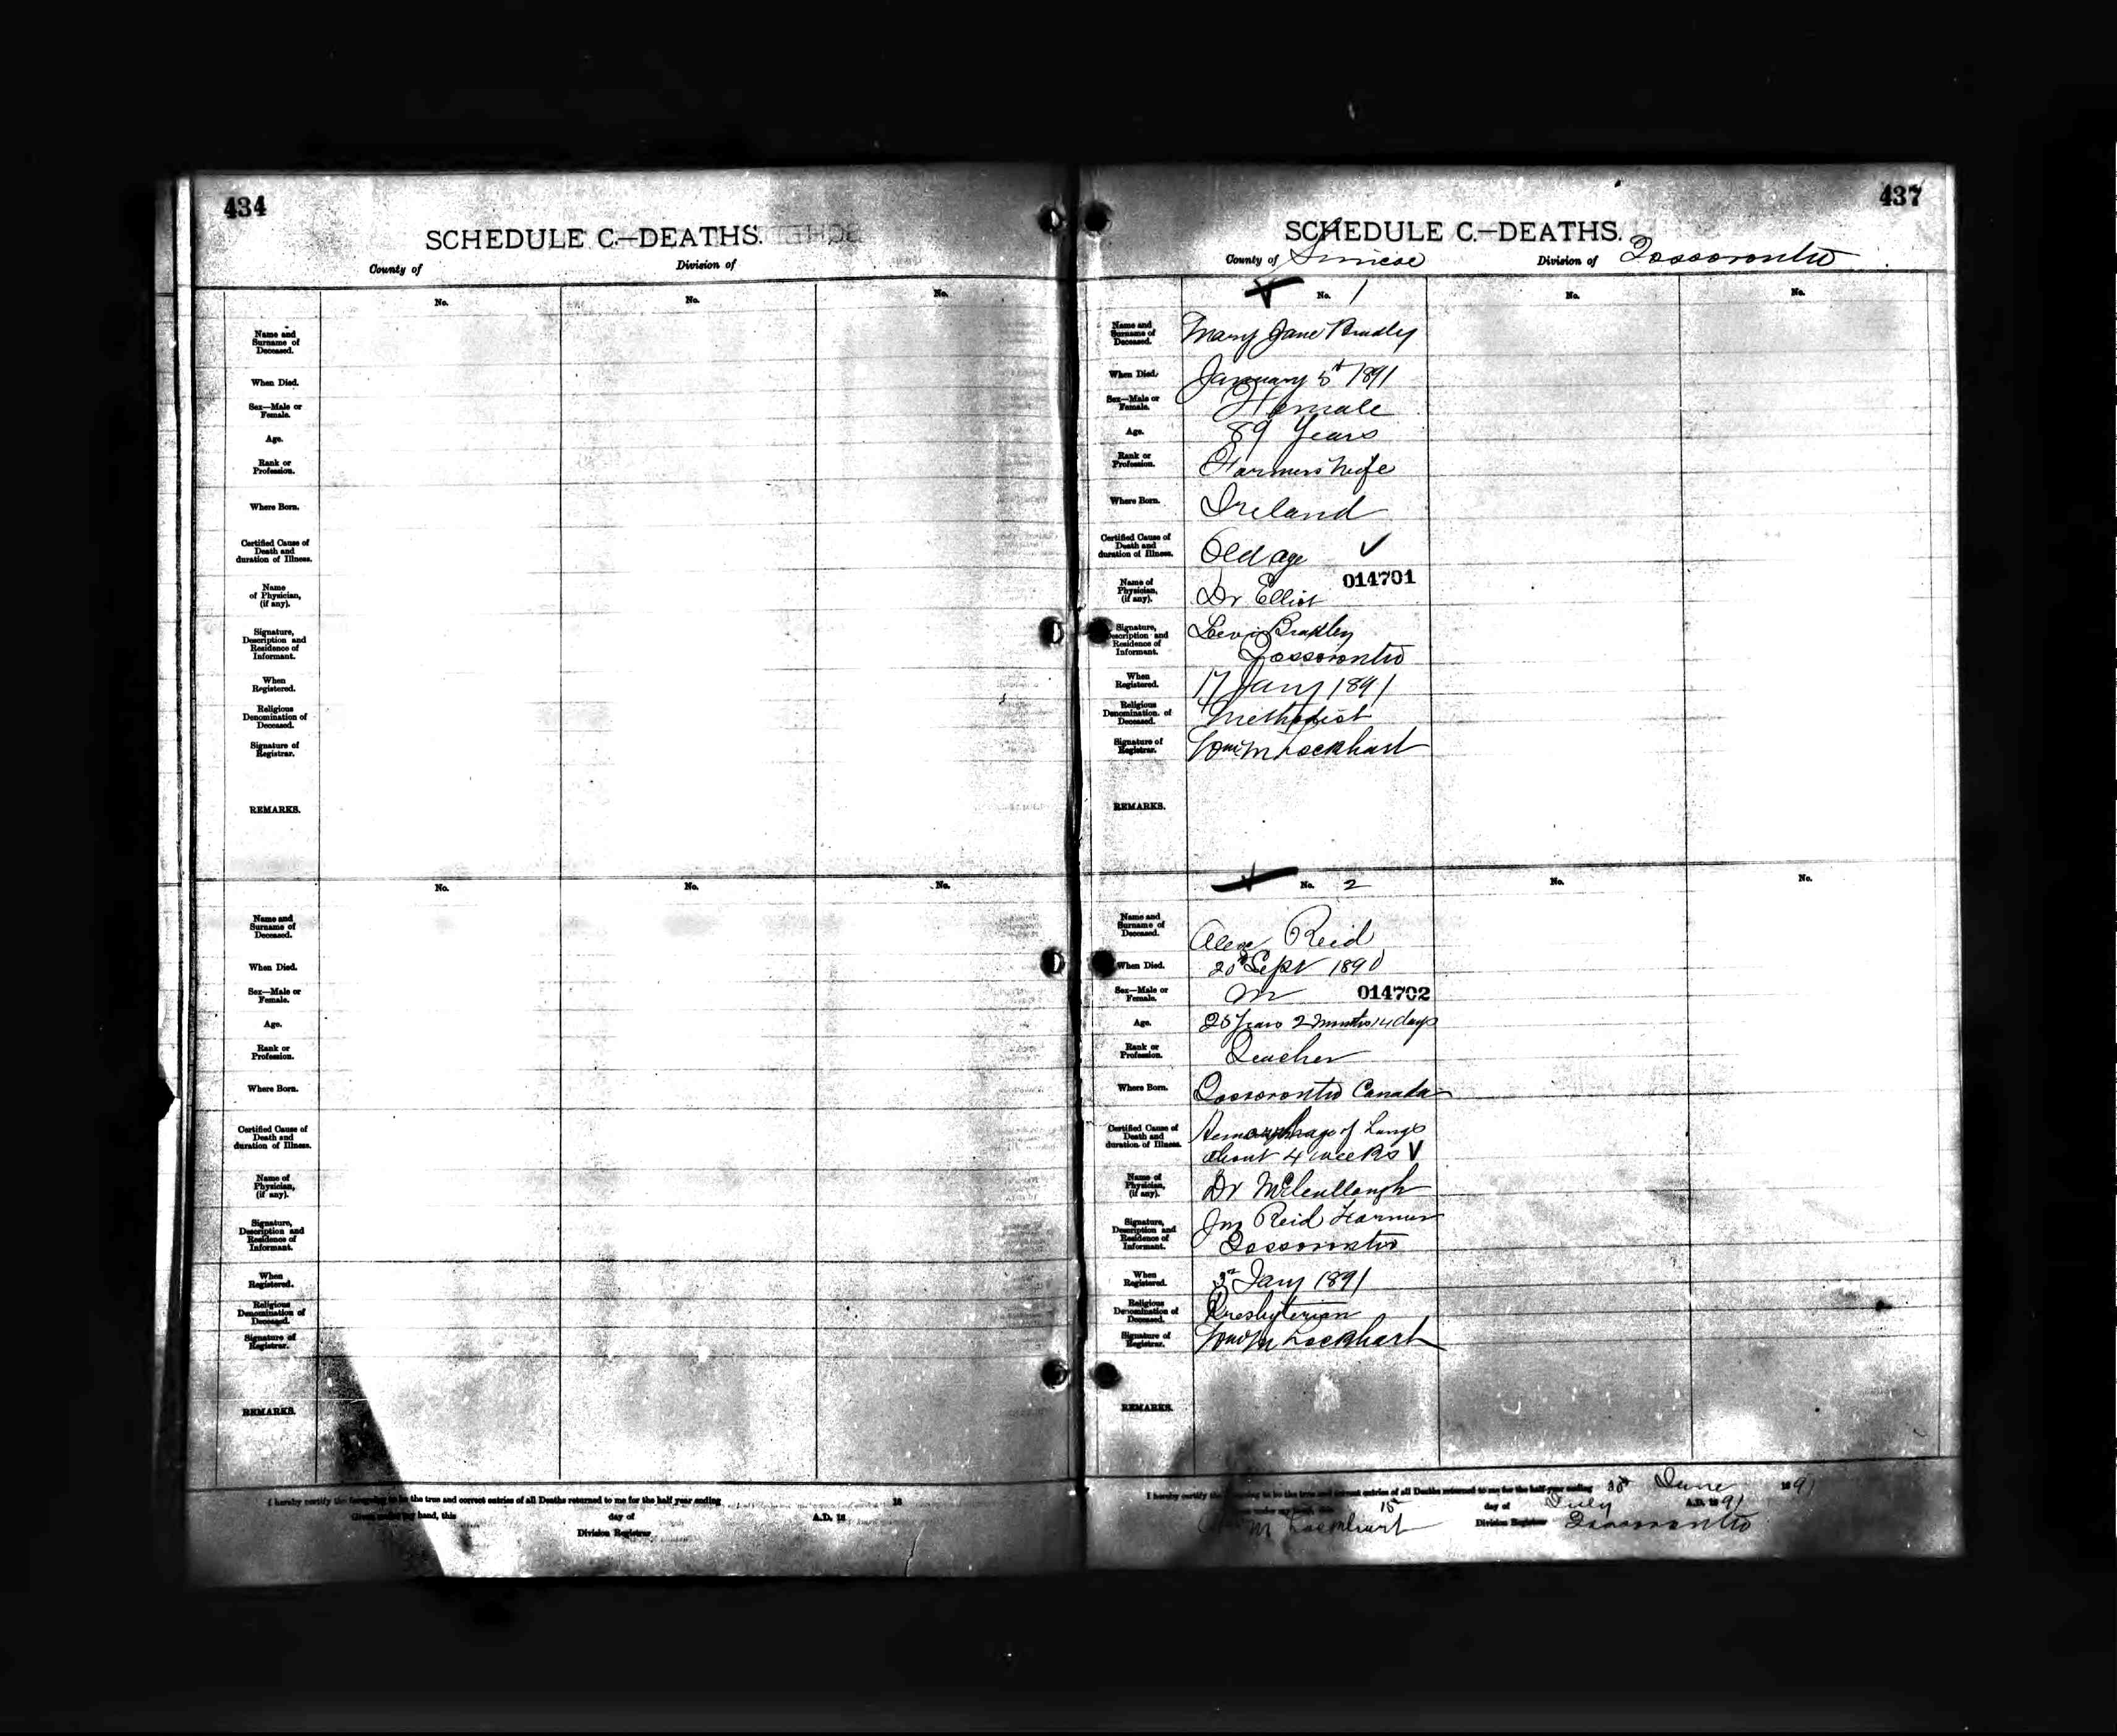 434
SCHEDULE C.—DEATHS.
County of
Division of
No.
No.
No.
Name and
Surname of
Deceased.
When Died.
Sex—Male or
Female.
Age.
Rank or
Profession.
Where Born.
Certified Cause of
Death and
duration of Illness.
Name
of Physician,
(if any).
Signature,
Description and
Residence of
Informant.
When
Registered.
Religious
Denomination of
Deceased.
Signature of
Registrar.
REMARKS.
No.
No.
No.
Name and
Surname of
Deceased.
When Died.
Sex—Male or
Female.
Age.
Rank or
Profession.
Where Born.
Certified Cause of
Death and
duration of Illness.
Name of
Physician,
(if any).
Signature,
Description and
Residence of
Informant.
When
Registered.
Religious
Denomination of
Deceased.
Signature of
Registrar.
REMARKS.
I hereby certify the foregoing to be the true and correct entries of all Deaths returned to me for the half year ending 18
Given under my hand, this day of A.D. 18
Division Registrar
437
SCHEDULE C.—DEATHS.
County of Simcoe Division of Tossorontio
No. 1
No.
No.
Name and
Surname of
Deceased.
Mary Jane Bradley
When Died.
January 5th 1891
Sex—Male or
Female.
Female
Age.
89 Years
Rank or
Profession.
Farmers Wife
Where Born.
Ireland
Certified Cause of
Death and
duration of Illness.
Old age
014701
Name of
Physician,
(if any).
Dr Elliot
Signature,
Description and
Residence of
Informant.
Levi Bradley
Tossorontio
When
Registered.
17 Jany 1891
Religious
Denomination of
Deceased.
Methodist
Signature of
Registrar.
Wm M Lockhart
REMARKS.
No. 2
No.
No.
Name and
Surname of
Deceased.
Alex Reid
When Died.
Sept 1890
Sex—Male or
Female.
M
014702
Age.
Years 2 Months 14 days
Rank or
Profession.
Teacher
Where Born.
Tossorontio Canada
Certified Cause of
Death and
duration of Illness.
Hemorrhage of Lungs
about 4 weeks
Name of
Physician,
(if any).
Dr McCullough
Signature,
Description and
Residence of
Informant.
Jno Reid Farmer
Tossorontio
When
Registered.
Jany 1891
Religious
Denomination of
Deceased.
Presbyterian
Signature of
Registrar.
Wm M Lockhart
REMARKS.
I hereby certify the foregoing to be the true and correct entries of all Deaths returned to me for the half year ending 30th June 1891
under my hand, this 15th day of July A.D. 1891
M Lockhart Division Registrar Tossorontio